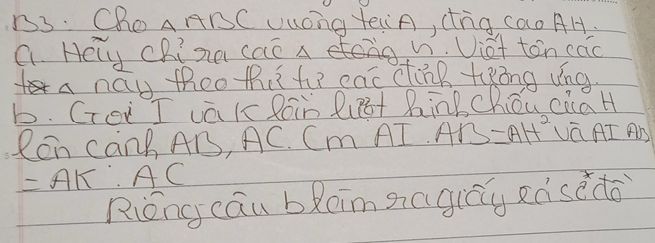 B3. Cho Δ ABC vuông tại A, đường cao AH.
a. Hãy chỉ ra các Δ đồng dạng. Viết tên các
Δ này theo thứ tự các đỉnh tương ứng.
b. Gọi I và K lần lượt hình chiếu của H
lên cạnh AB, AC. Cm AI. AB = AH² và AI AB
= AK. AC
Riêng câu b làm ra giấy có sẽ đồ